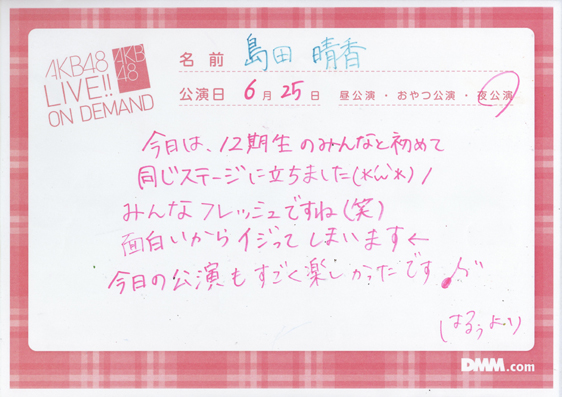 AKB48
LIVE!!
ON DEMAND
AKB
48
名前 島田 晴香
公演日 6月25日 昼公演・おやつ公演・夜公演
今日は、12期生のみんなと初めて
同じステージに立ちました(*'ω'*)ノ
みんなフレッシュですね(笑)
面白いからイジってしまいます←
今日の公演もすごく楽しかったです♪
はるぅより
DMM.com